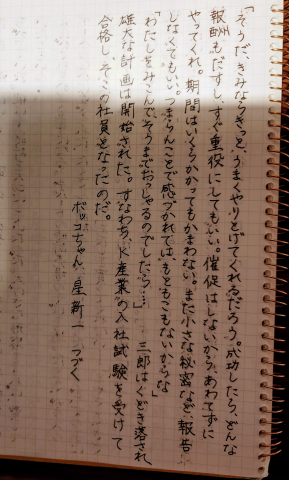 「そうだ。きみならきっと、うまくやりとげてくれるだろう。成功したら、どんな
報酬もだすし、すぐ重役にしてもいい。催促はしないから、あわてずに
やってくれ。期間はいくらかかってもかまわない。また小さな秘密など、報告
しなくてもいい。つまらんことで感づかれてはもともこもないからな」
「わたしをみこんで、そうまでおっしゃるのでしたら……」 三郎はくどき落され、
雄大な計画は開始された。すなわち、K産業の入社試験を受けて
合格し、そこの社員となったのだ。
ボッコちゃん 星新一 つづく